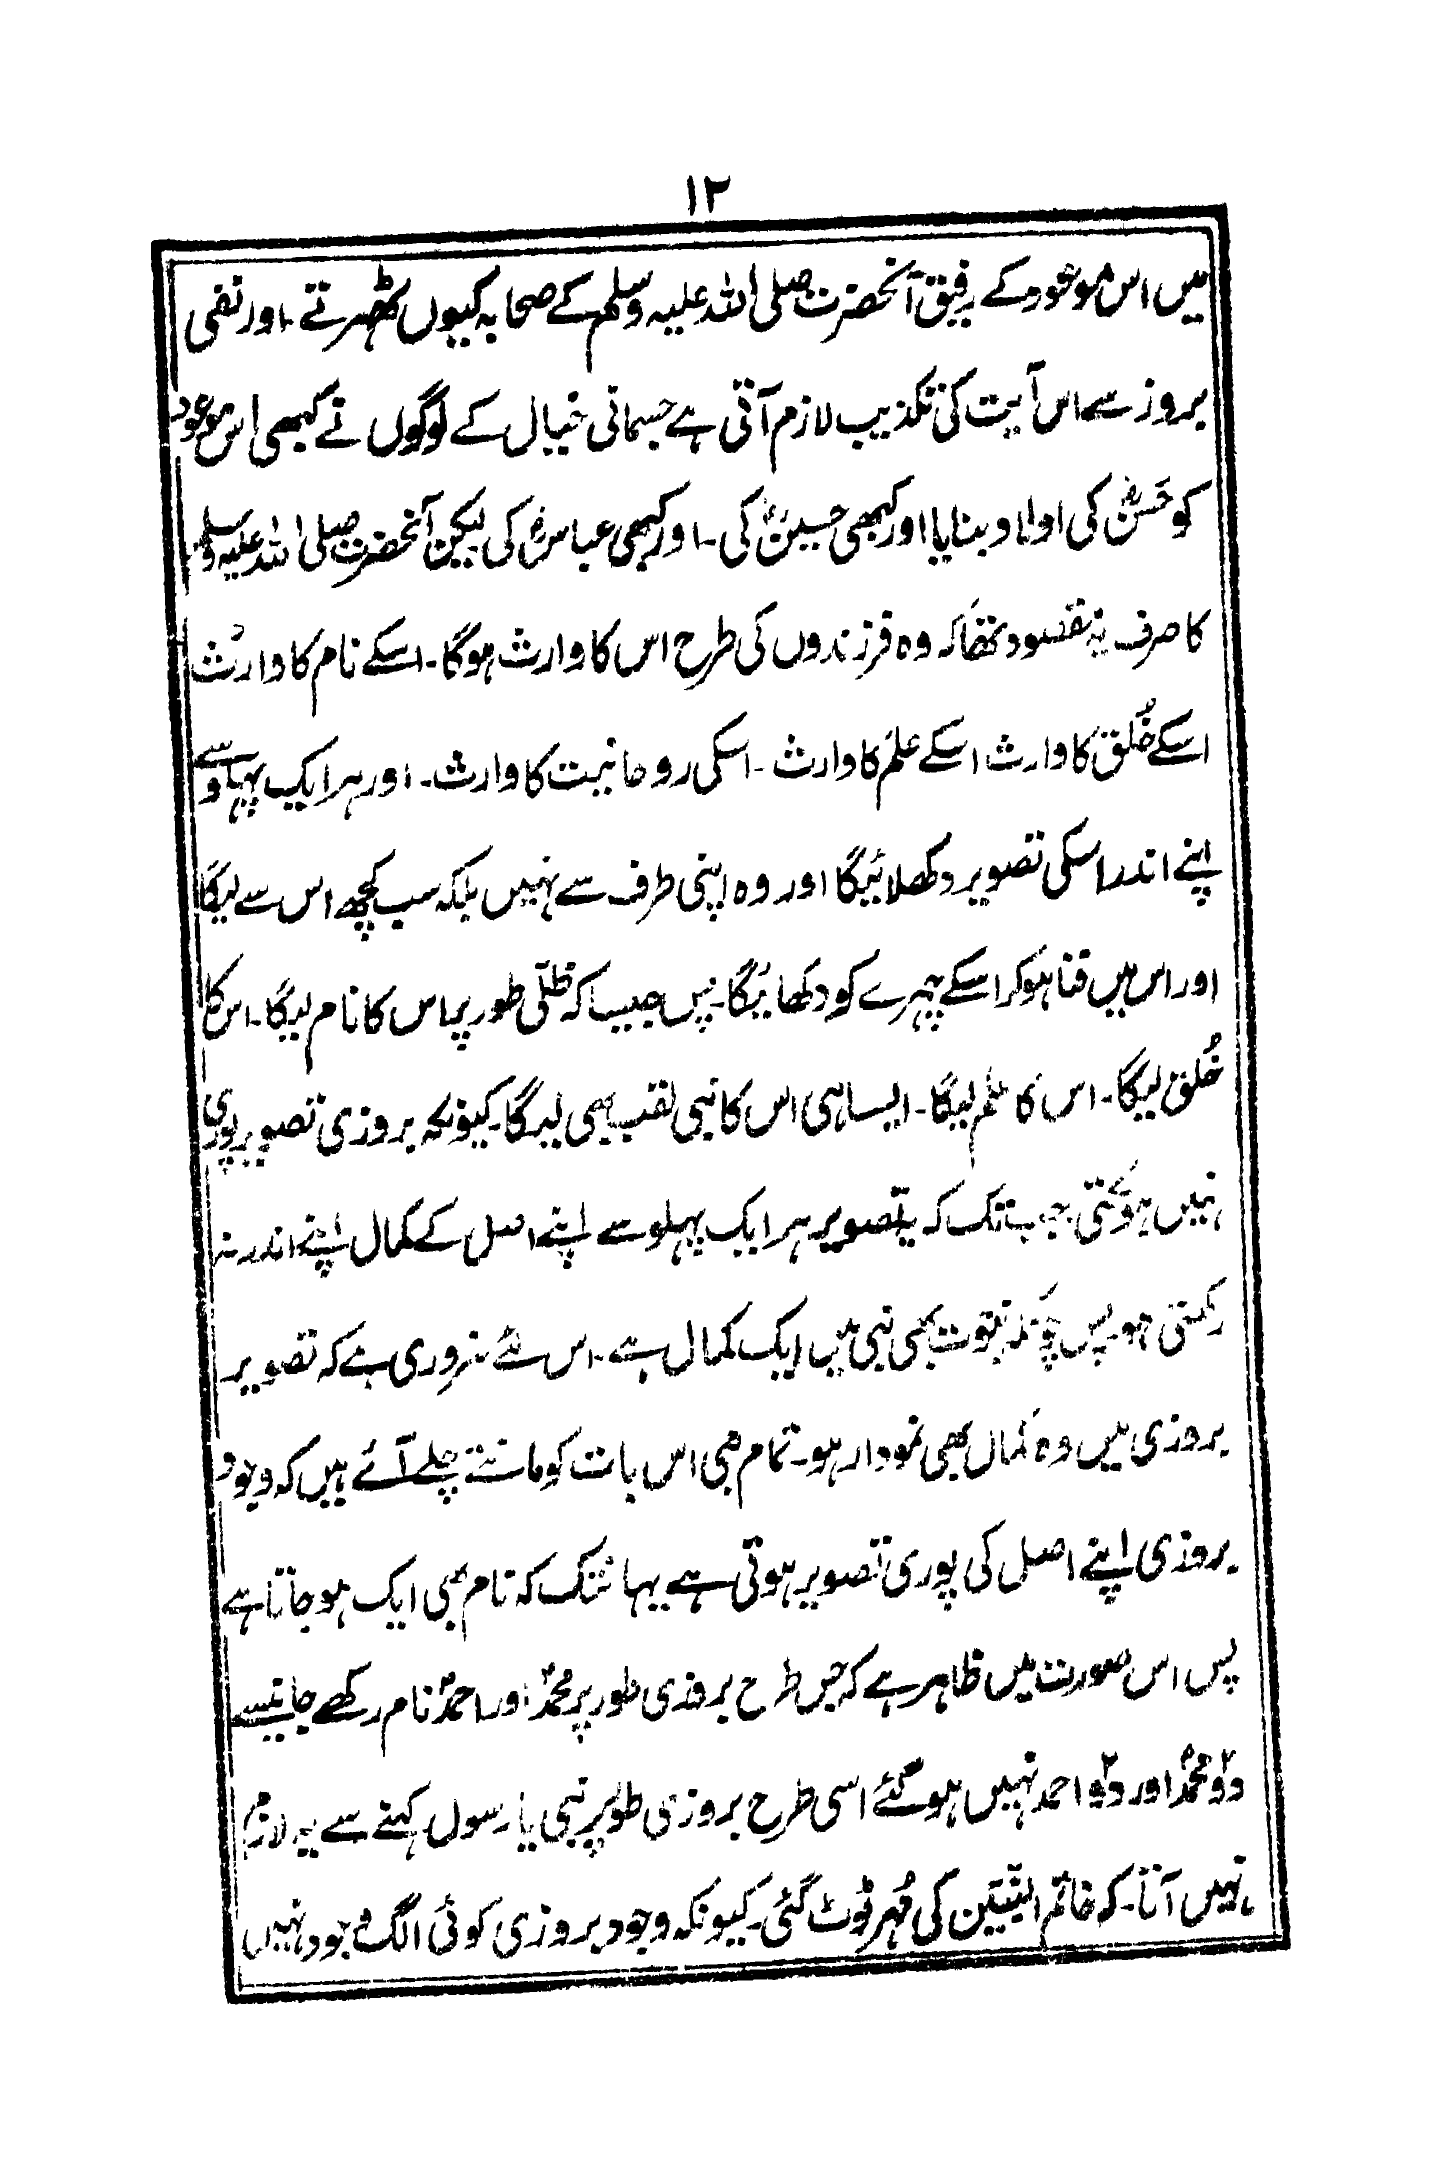 ۱۲
میں اس موعود کے رفیق آنحضرت صلی اللہ علیہ وسلم کے صحابہ کیوں ٹھہرتے۔ اور نفی
بروز سے اس آیت کی تکذیب لازم آتی ہے جسمانی خیال کے لوگوں نے کبھی اس موعود
کو حسنؓ کی اولاد بنایا اور کبھی حسینؓ کی۔ اور کبھی عباسؓ کی لیکن آنحضرت صلی اللہ علیہ وسلم
کا صرف یہ مقصود تھا کہ وہ فرزندوں کی طرح اس کا وارث ہوگا۔ اسکے نام کا وارث
اسکے خُلق کا وارث اسکے علم کا وارث۔ اسکی روحانیت کا وارث۔ اور ہر ایک پہلو سے
اپنے اندر اسکی تصویر دکھلائیگا اور وہ اپنی طرف سے نہیں بلکہ سب کچھ اس سے لیگا
اور اس میں فنا ہوکر اسکے چہرے کو دکھائیگا۔ پس جیسا کہ ظلّی طور پر اس کا نام لیگا۔ اس کا
خُلق لیگا۔ اس کا علم لیگا۔ ایسا ہی اس کا نبی لقب بھی لیگا۔ کیونکہ بروزی تصویر پوری
نہیں ہوسکتی جب تک کہ یہ تصویر ہر ایک پہلو سے اپنے اصل کے کمال اپنے اندر نہ
رکھتی ہو۔ پس چونکہ نبوت بھی نبی میں ایک کمال ہے۔ اس لئے ضروری ہے کہ تصویر
بروزی میں وہ کمال بھی نمودار ہو۔ تمام نبی اس بات کو مانتے چلے آئے ہیں کہ وجود
بروزی اپنے اصل کی پوری تصویر ہوتی ہے یہانتک کہ نام بھی ایک ہو جاتا ہے
پس اس صورت میں ظاہر ہے کہ جس طرح بروزی طور پر محمدؐ اور احمدؐ نام رکھے جانیسے
دو محمدؐ اور دو احمد نہیں ہوگئے اسی طرح بروزی طور پر نبی یا رسول کہنے سے یہ لازم
نہیں آتا۔ کہ خاتم النبیّین کی مُہر ٹوٹ گئی۔ کیونکہ وجود بروزی کوئی الگ وجود نہیں